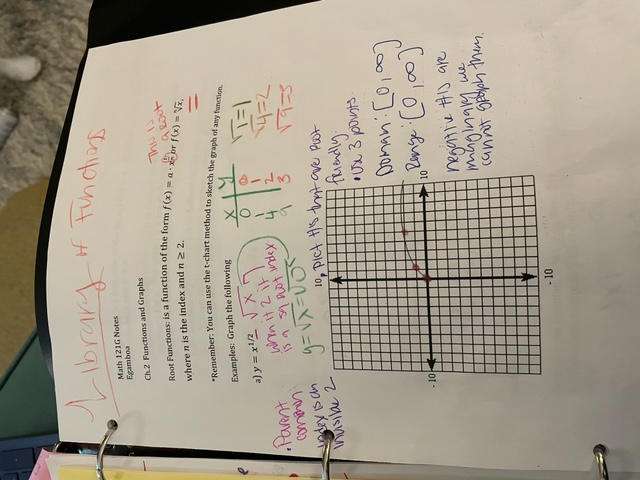 Library of Functions
Math 121G Notes
Egamboa
Ch.2 Functions and Graphs
This is a Root
Root Functions: is a function of the form f(x) = a · x^(1/n) or f(x) = ⁿ√x,
where n is the index and n ≥ 2.
*Remember: You can use the t-chart method to sketch the graph of any function.
Examples: Graph the following
a) y = x^1/2 = √x
when it 2 it
is a sq root index
y=√x=√0
x y
0 0
1 1
4 2
9 3
√1=1
√4=2
√9=3
• Parent
common
index is an
invisible 2
• Pict #'s that are root
friendly
• Use 3 points
Domain: [0,∞)
Range: [0,∞)
negative #'s are
imaginary we
cannot graph them.
10
-10
10
-10